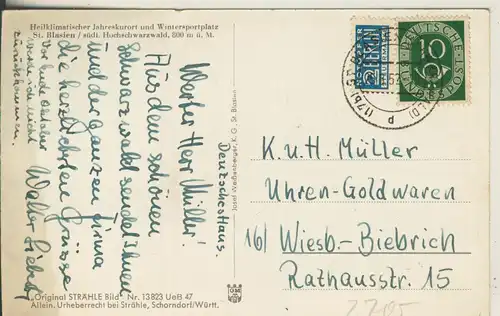 Heilklimatischer Jahreskurort und Wintersportplatz
St. Blasien / südl. Hochschwarzwald, 800 m ü. M.
Deutsches Haus.
Werter Herr Müller!
Aus dem schönen
Schwarzwald sendet Ihnen
und der ganzen Firma
die herzlichsten Grüsse
Walter
Vor Ende Oktober
nicht
zurückkommen.
"Original STRÄHLE Bild" Nr. 13823 UeB 47
Allein. Urheberrecht bei Strähle, Schorndorf/Württ.
Josef Weißenberger, K. G., St. Blasien
NOTOPFER
2
BERLIN
STEUERMARKE
DEUTSCHE
10
BUNDESPOST
K. u. H. Müller
Uhren-Goldwaren
16/ Wiesb.-Biebrich
Rathausstr. 15